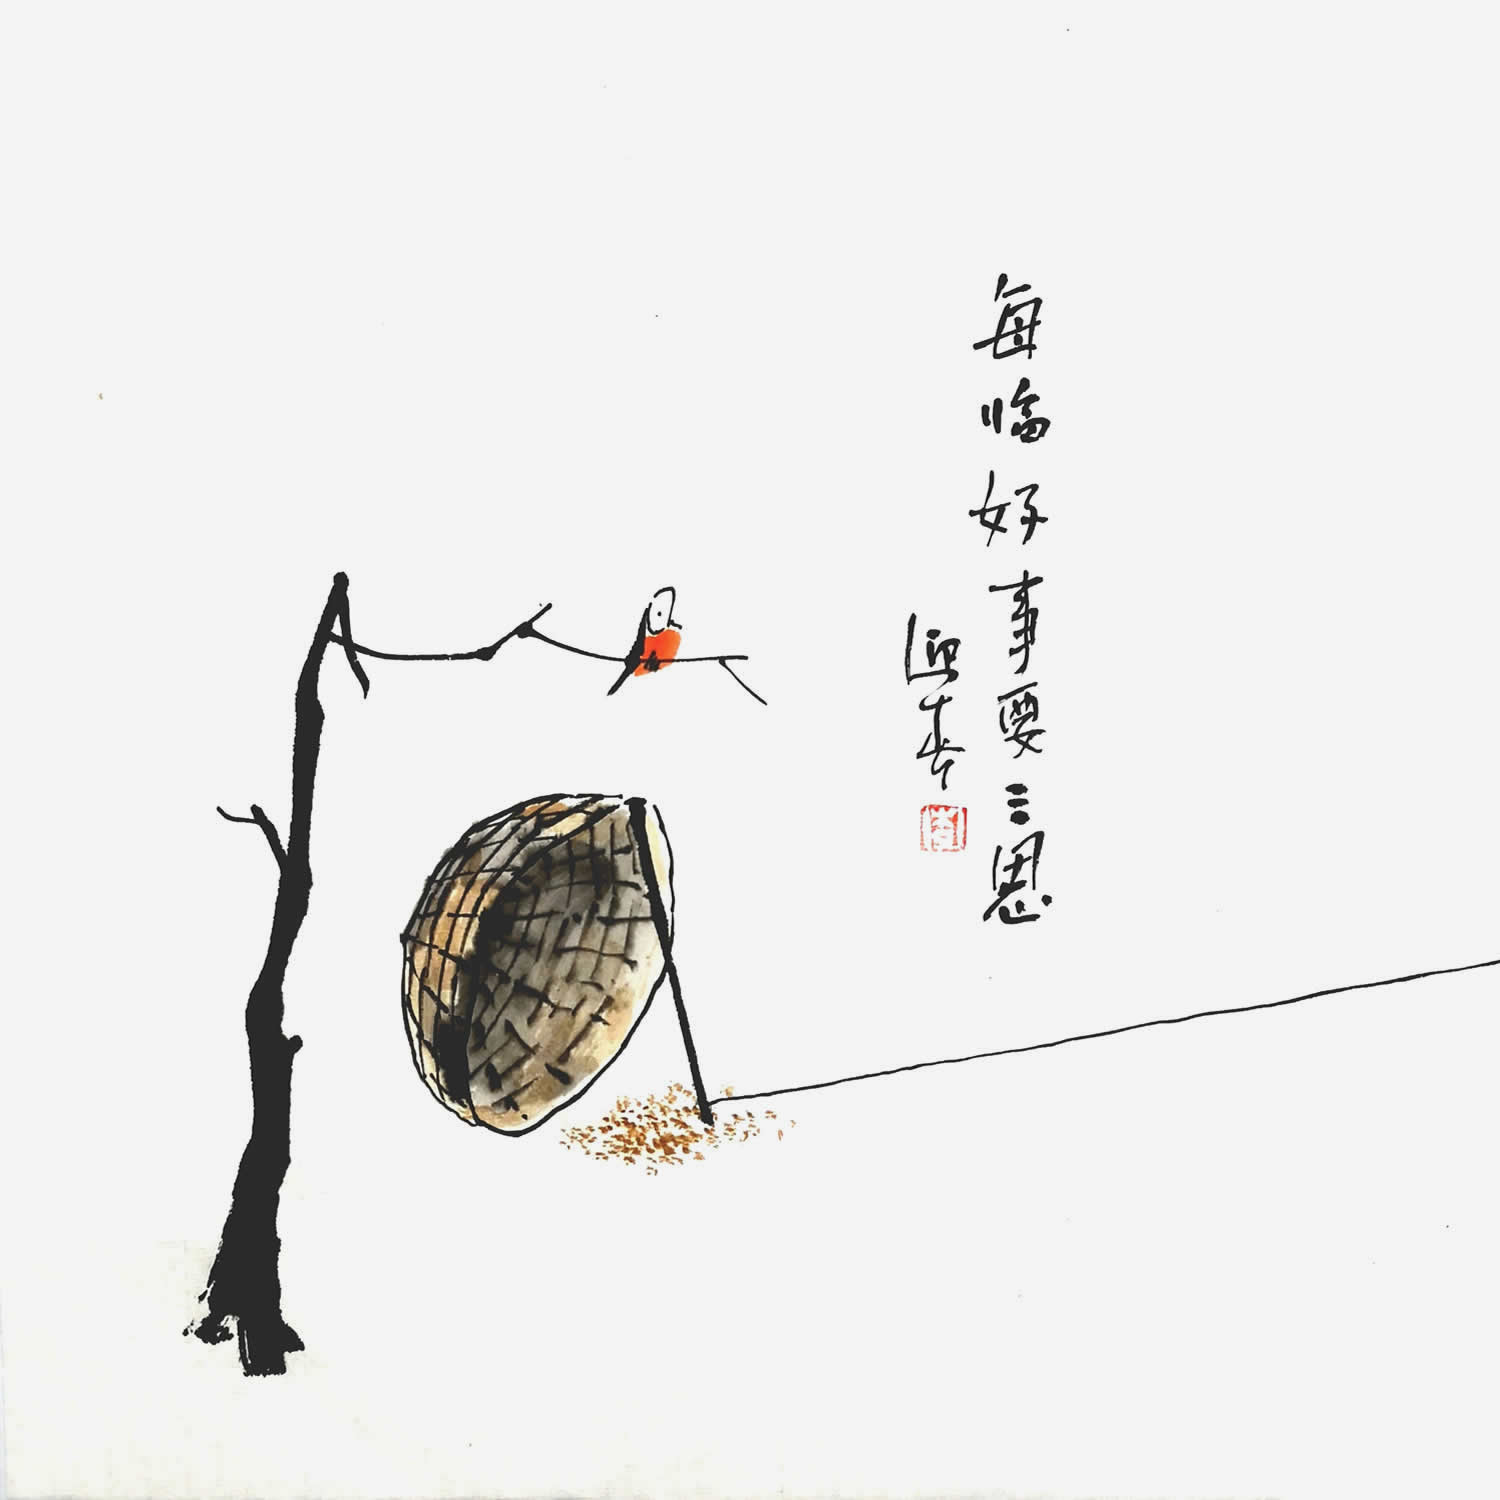 每临好事要三思
迎春